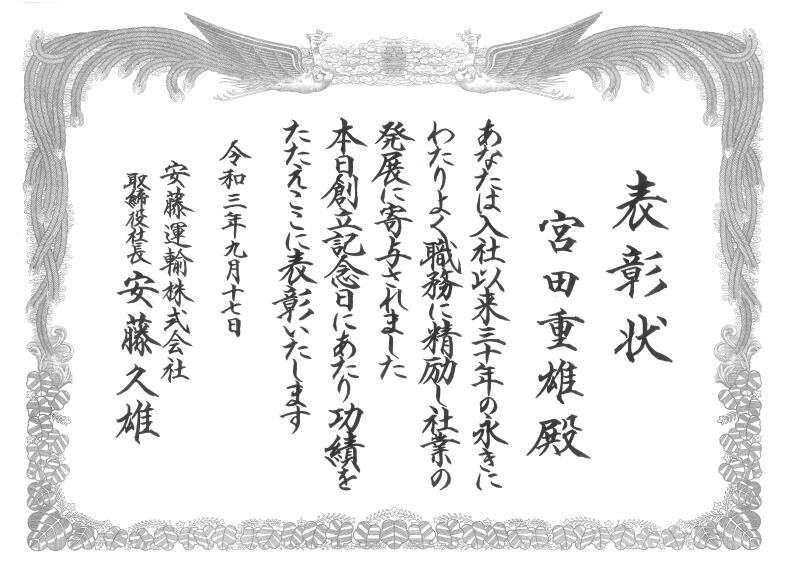 表彰状
宮田重雄殿
あなたは入社以来三十年の永きに
わたりよく職務に精励し社業の
発展に寄与されました
本日創立記念日にあたり功績を
たたえここに表彰いたします
令和三年九月十七日
安藤運輸株式会社
取締役社長 安藤久雄